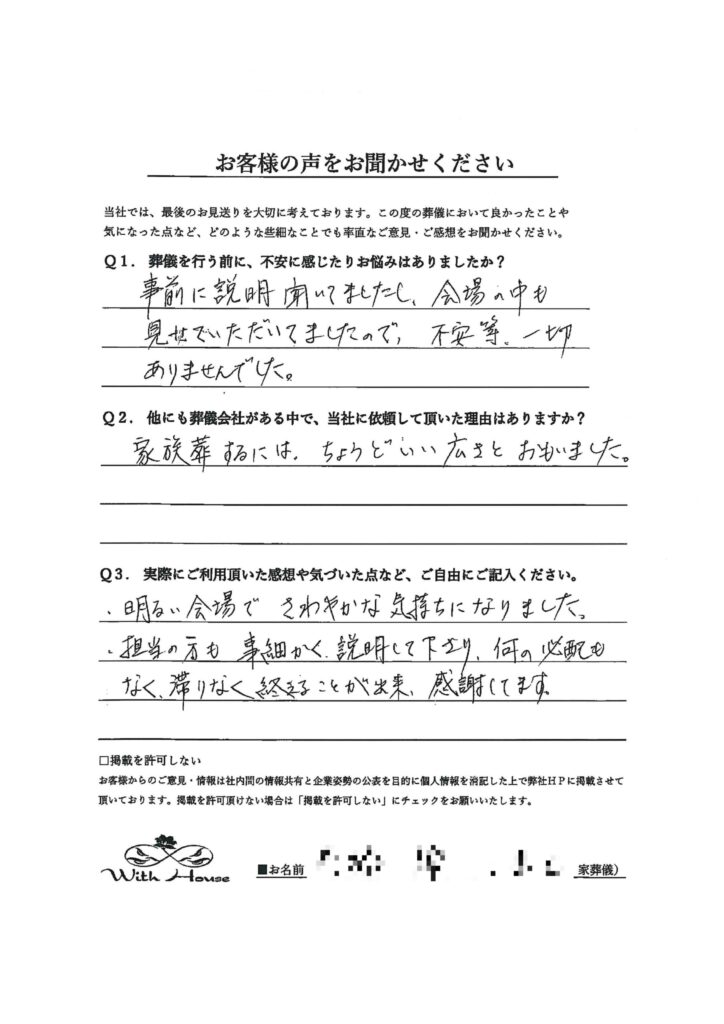 お客様の声をお聞かせください
当社では、最後のお見送りを大切に考えております。この度の葬儀において良かったことや
気になった点など、どのような些細なことでも率直なご意見・ご感想をお聞かせください。
Q1. 葬儀を行う前に、不安に感じたりお悩みはありましたか?
事前に説明聞いてましたし、会場の中も
見せていただいてましたので、不安等、一切
ありませんでした。
Q2. 他にも葬儀会社がある中で、当社に依頼して頂いた理由はありますか?
家族葬するには、ちょうどいい広さとおもいました。
Q3. 実際にご利用頂いた感想や気づいた点など、ご自由にご記入ください。
・明るい会場でさわやかな気持ちになりました。
・担当の方も事細かく説明して下さり、何の心配も
なく、滞りなく終えることが出来、感謝してます。
□掲載を許可しない
お客様からのご意見・情報は社内間の情報共有と企業姿勢の公表を目的に個人情報を消記した上で弊社HPに掲載させて
頂いております。掲載を許可頂けない場合は「掲載を許可しない」にチェックをお願いいたします。
With House
■お名前
家葬儀)